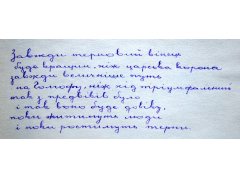 Завжди терновий вінець
буде кращим, ніж царська корона
завжди величніше путь
на Голгофу, ніж хід тріумфальний
так з предвіків було
і так воно буде довіку,
поки житимуть люди
і поки ростимуть терни.